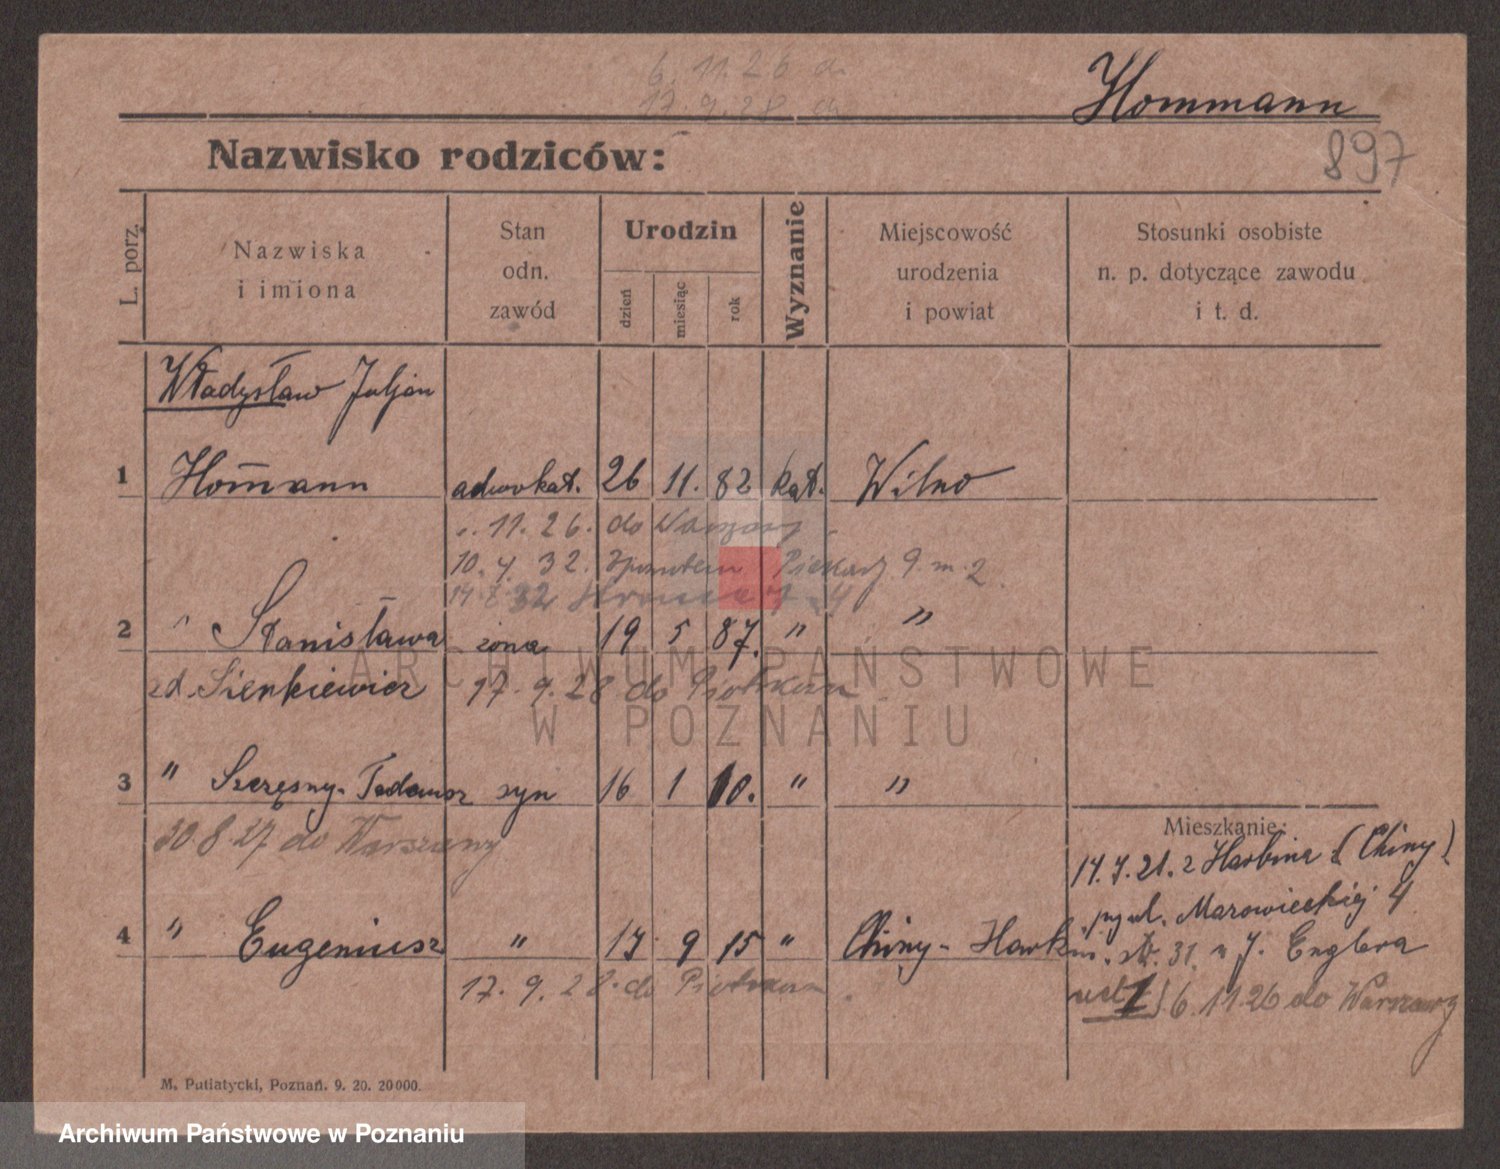 6. 11. 26 do
17. 9. 28 do
Hommann
897
Nazwisko rodziców:
L. porz.
Nazwiska
i imiona
Stan
odn.
zawód
Urodzin
dzień
miesiąc
rok
Wyznanie
Miejscowość
urodzenia
i powiat
Stosunki osobiste
n. p. dotyczące zawodu
i t. d.
Władysław Juljan
1 Hom̄ann adwokat. 26 11. 82 kat. Wilno
11. 26. do Warszawy
10. 4. 32. Piekary 9. m. 2
32
2 " Stanisława żona 19 5 87. " "
zd. Sienkiewicz 17. 9. 28 do Piotrkowa
3 " Szczęsny-Tadeusz syn 16 1 10. " "
30. 8. 27 do Warszawy
Mieszkanie:
14. 7. 21. z Harbina (Chiny)
ul. Mazowieckiej 4
4 " Eugeniusz " 17 9 15 " Chiny - Harbin
31 u J. Englera
17. 9. 28. do Piotrkowa
6. 11. 26 do Warszawy
M. Putiatycki, Poznań. 9. 20. 20000.
ARCHIWUM PAŃSTWOWE
W POZNANIU
Archiwum Państwowe w Poznaniu